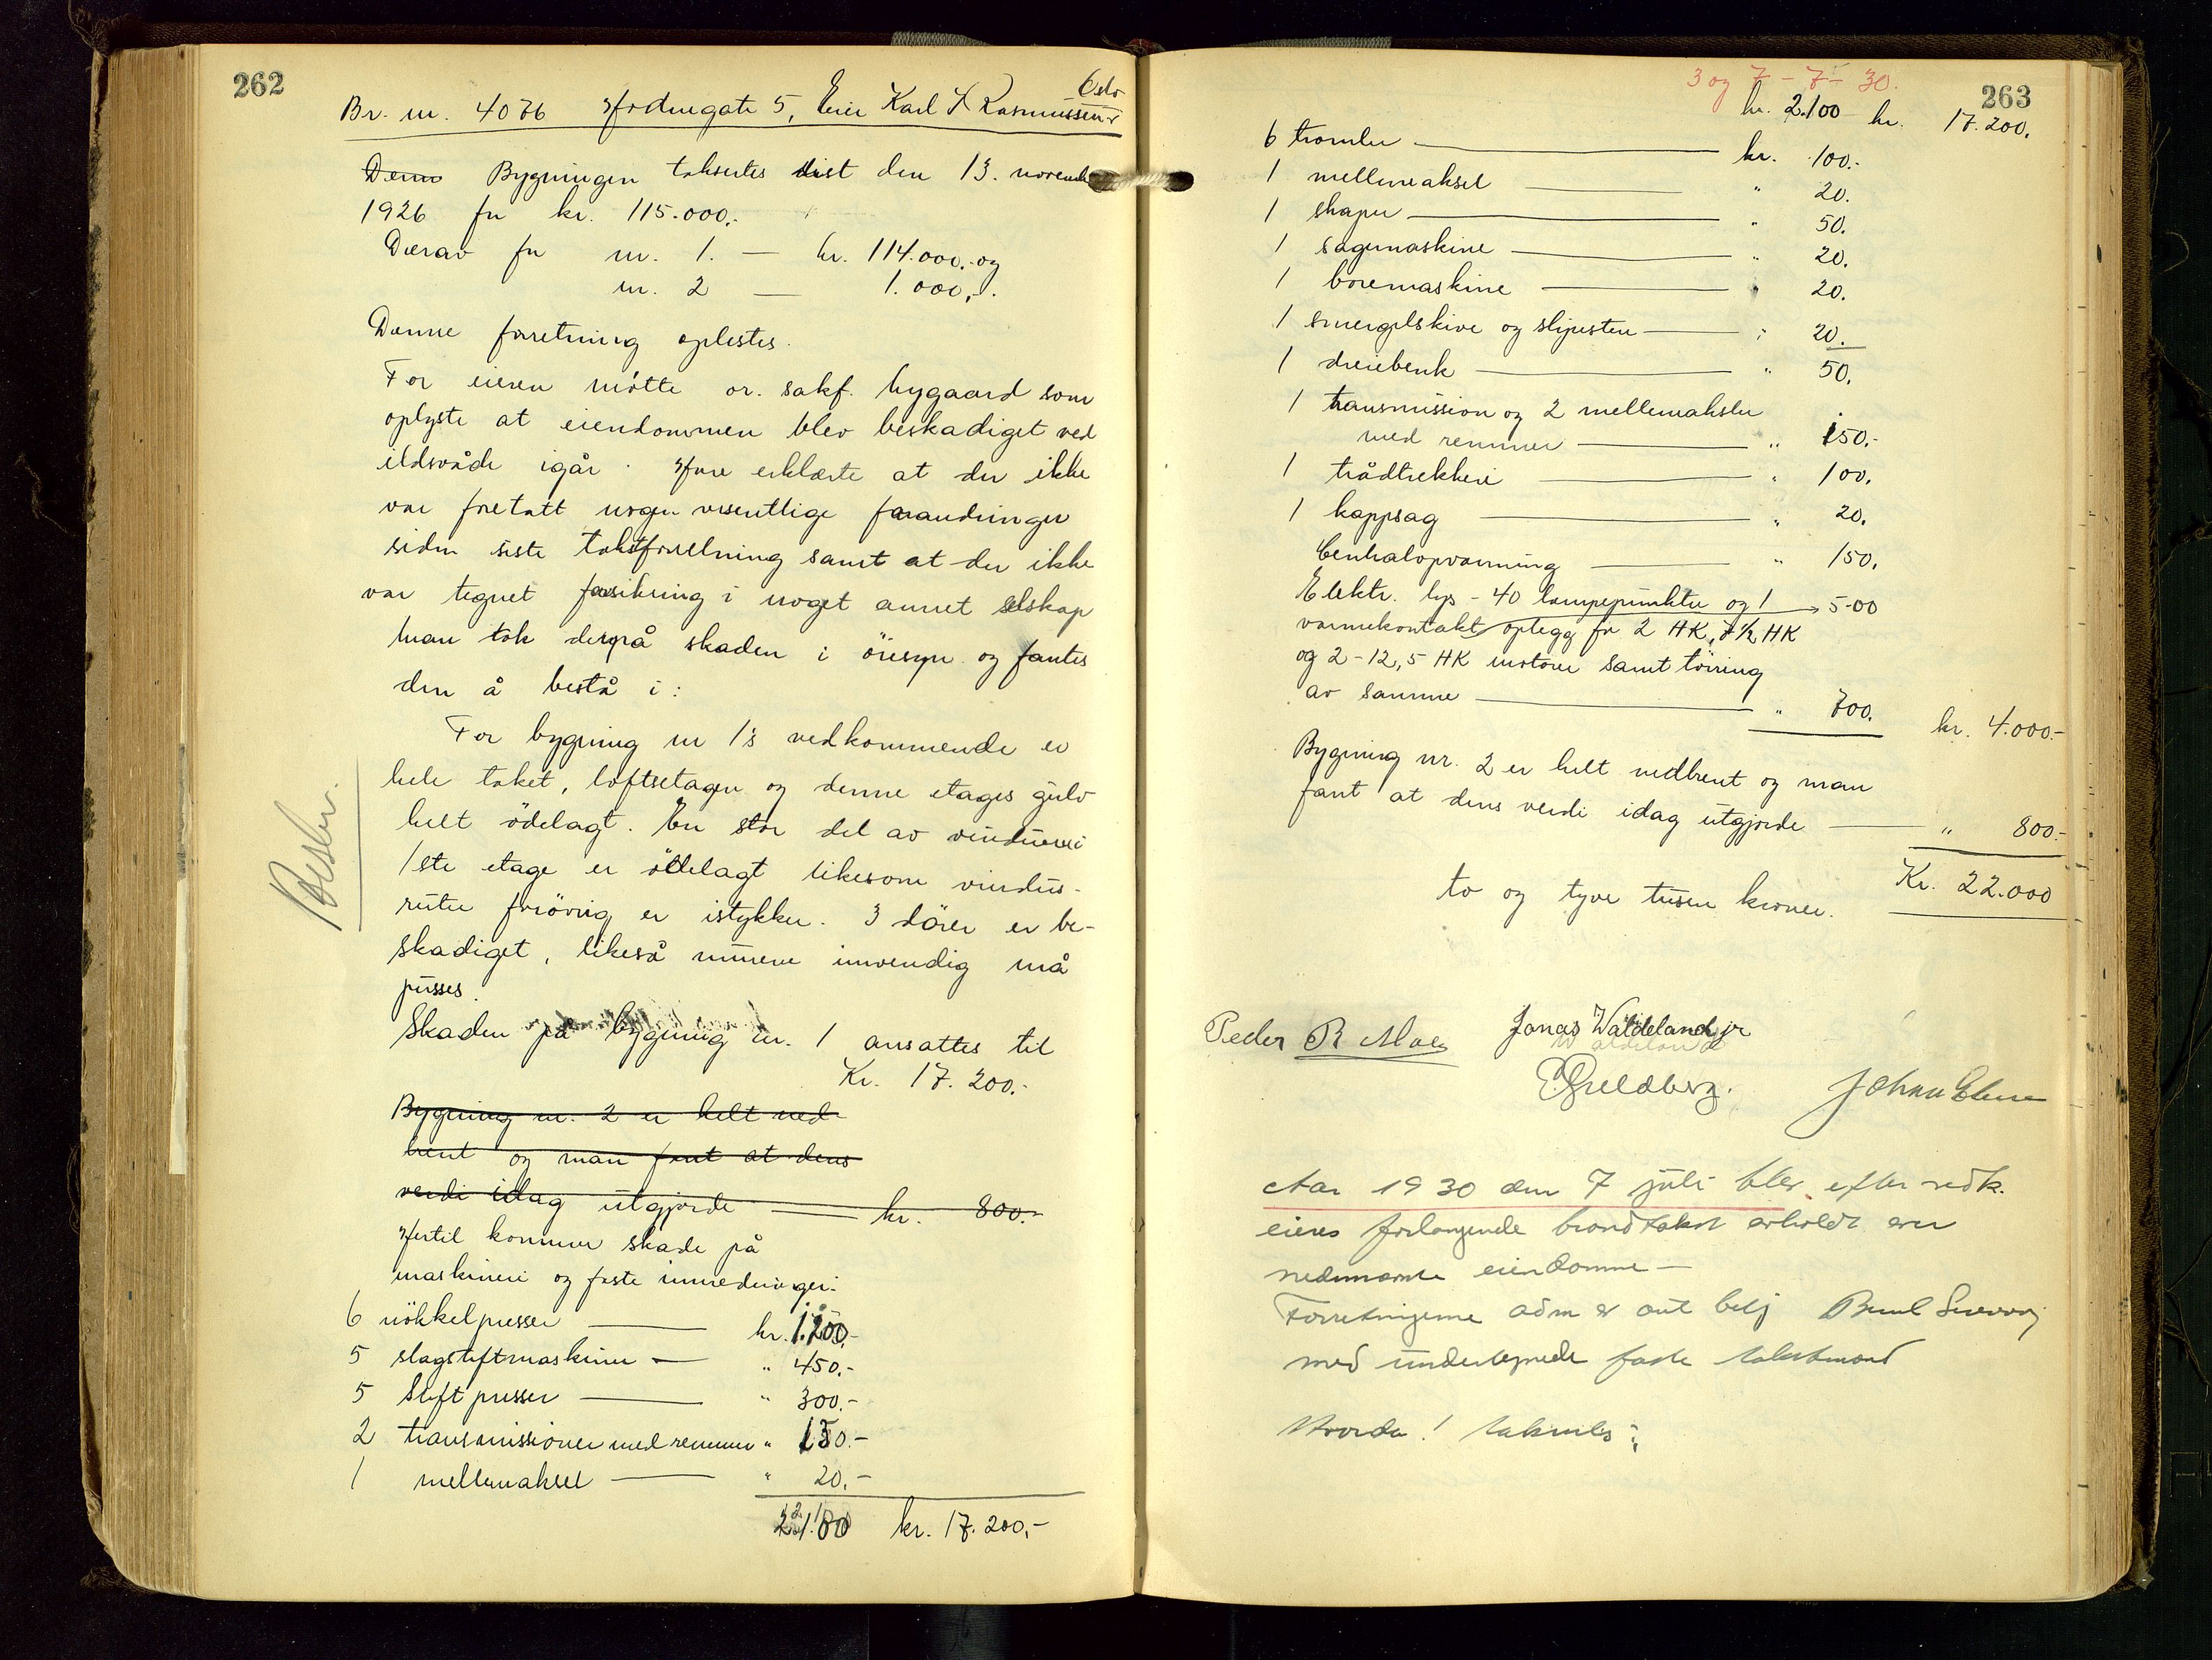 262
Br. nr. 4076 Hodnegate 5, Eier Karl L Rasmussen
Oslo
Denne Bygningen takseртes sist den 13. november
1926 for kr. 115.000.-
Derav for nr. 1. — kr. 114.000.- og
nr. 2 — 1.000,-.
Denne forretning oplestes.
For eieren møtte or. sakf. Nygaard som
oplyste at eiendommen blev beskadiget ved
ildsvåde igår. Høie erklærte at der ikke
var foretatt nogen vesentlige forandringer
siden siste takstforretning samt at der ikke
var tegnet forsikring i noget annet selskap
Man tok derpå skaden i øiesyn og fantes
den å bestå i:
For bygning nr 1's vedkommende er
hele taket, loftsetagen og denne etages gulv
helt ødelagt. En stor del av vinduene i
1ste etage er ødelagt likesom vindus-
ruter forøvrig er istykker. 3 dører er be-
skadiget, likeså murene innvendig må
pusses.
Skaden på bygning nr. 1 ansattes til
Kr. 17.200.-
Bygning nr. 2 er helt ned-
brent og man fant at dens
verdi idag utgjorde — kr. 800.-
Hertil kommer skade på
maskineri og faste innredninger:
6 nøkkelpresser — kr. 1.200.-
5 slagstiftmaskiner — " 450.-
5 Stift presser — " 300.-
2 transmissioner med remmer " 150.-
1 mellemaksel — " 20.-
2.100 kr. 17.200,-
Besbr.
263
3 og 7 - 7 - 30.
kr. 2.100 kr. 17.200.
6 tromler — kr. 100.-
1 mellemaksel — " 20.
1 shaper — " 50.
1 sagemaskine — " 20.
1 boremaskine — " 20.
1 smergelskive og slipesten — " 20.
1 dreiebenk — " 50.
1 transmission og 2 mellemaksler
med remmer — " 150.-
1 trådtrekkeri — " 100.
1 kappsag — " 20.
Centralopvarming — " 150.
Elektr. lys - 40 lampepunkter og 1 500
varmekontakt oplegg for 2 HK, 7½ HK
og 2 - 12,5 HK motorer samt tørring
av samme — " 700. kr. 4.000.-
Bygning nr. 2 er helt nedbrent og man
fant at dens verdi idag utgjorde — " 800.-
Kr. 22.000
to og tyve tusen kroner.
Peder R Moe Jonas Waldeland jr
Waldeland
Johan
Aar 1930 den 7 juli blev efter vedk.
eieres forlangende brandtakst avholdt over
nedennævnte eiendomme —
Forretningerne adm er aut betj
med undertegnede faste takstmænd